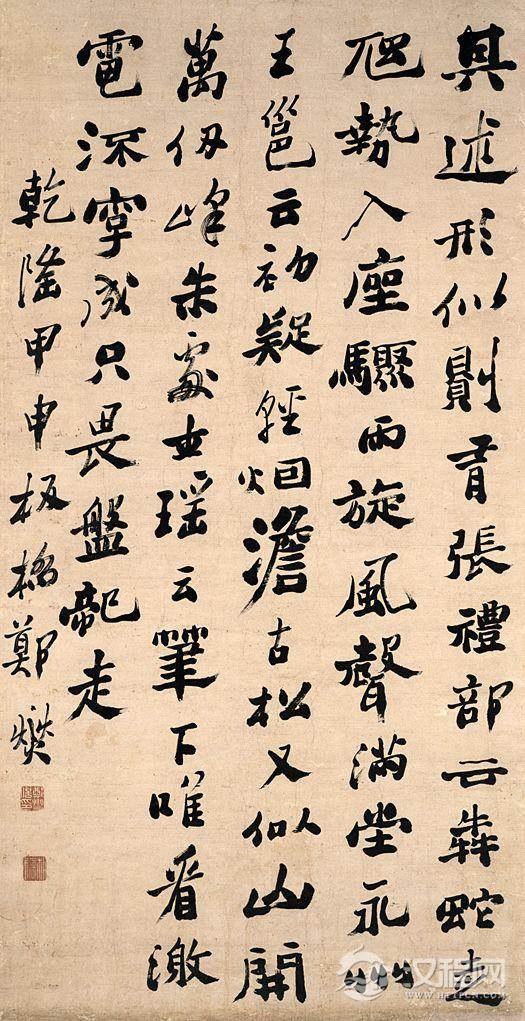 其述形似則有張禮部云犇蛇走
虺勢入座驟雨旋風聲滿堂永州
王邕云初疑輕烟澹古松又似山開
萬仞峰朱處士瑶云筆下唯看激
電流字成只畏盤龍走
乾隆甲申板橋鄭燮
汉程网
HTTPCN.COM